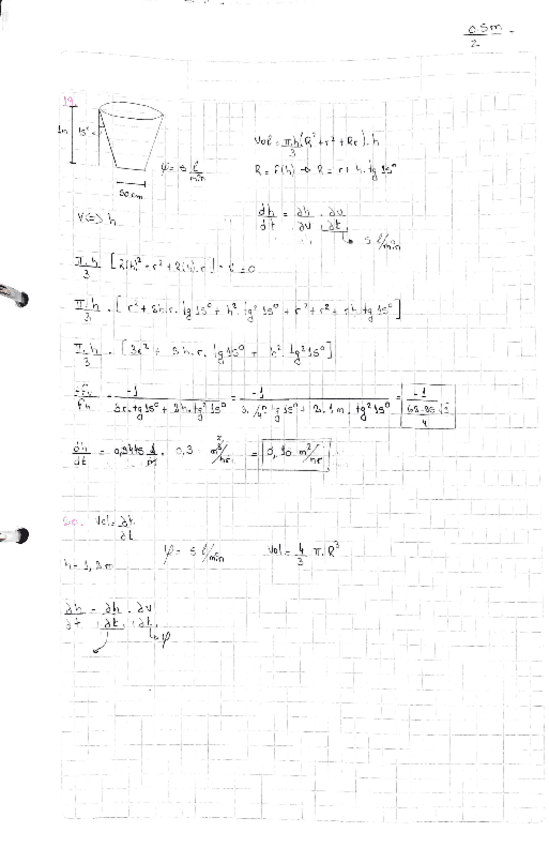 0.5m
2
19.
1m 15°
φ = 5 l/min
50 cm
Vol = π.h/3 (R² + r² + Rr).h
R = f(h) → R = r + h.tg 15°
V(=) h
dh/dt = ∂h/∂v . ∂v/∂t → 5 l/min
π.h/3 [R(h)² + r² + R(h).r] - v = 0
π.h/3 . [r² + 2h.r. tg 15° + h² tg² 15° + r² + r² + rh tg 15°]
π.h/3 . [3r² + 3h.r. tg 15° + h². tg² 15°]
-fv/fh = -1/(3r.tg 15° + 2h.tg² 15°) = -1/(3. tg 15° + 2.1m. tg² 15°) = -1
4
dh/dt = . 0,3 m³/hr = 0,10 m²/hr
20. Vol = ∂h/∂t
φ = 5 l/min Vol = 4/3 π.R³
∂h/∂t = ∂h/∂t . ∂v/∂h → φ